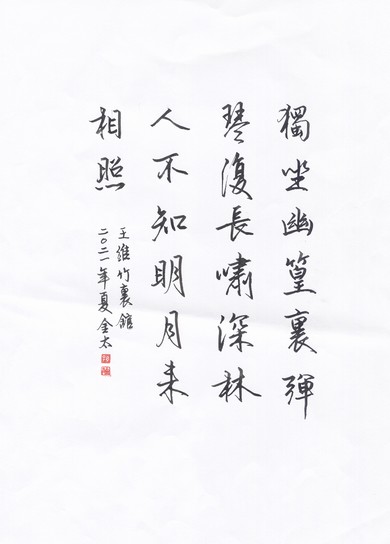 獨坐幽篁裏彈
琴復長嘯深林
人不知明月来
相照
王維竹裏館
二〇二一年夏金太